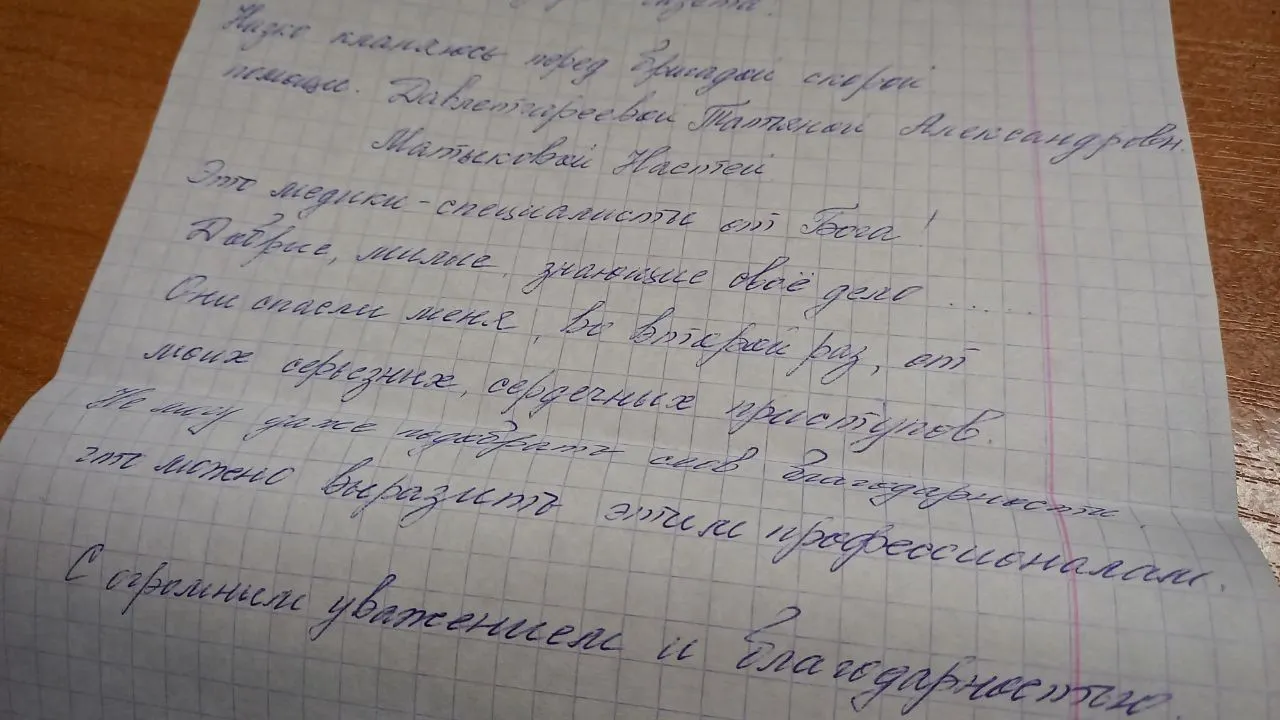 газета!
Низко кланяюсь перед бригадой скорой
помощи. Давлетгиреевой Татьяной Александровн.
Матыковой Настей
Это медики-специалисты от Бога!
Добрые, милые, знающие своё дело .....
Они спасли меня, во второй раз, от
моих серьезных, сердечных приступов.
Не могу даже подобрать слов благодарности.
это можно выразить этим профессионалам.
С огромным уважением и благодарностью.